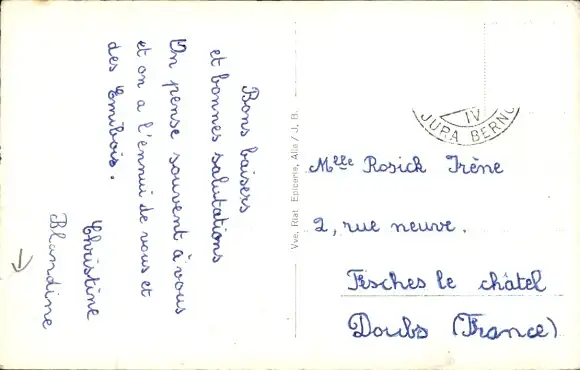 Bons baisers
et bonnes salutations
On pense souvent à vous
et on a l'ennui de vous et
des Emibois.
Christine
Blandine
Vve. Riat Epicerie, Alle / J. B.
IV
JURA BERNO
Mlle Rosick Irène
2, rue neuve.
Fesches le châtel
Doubs (France)